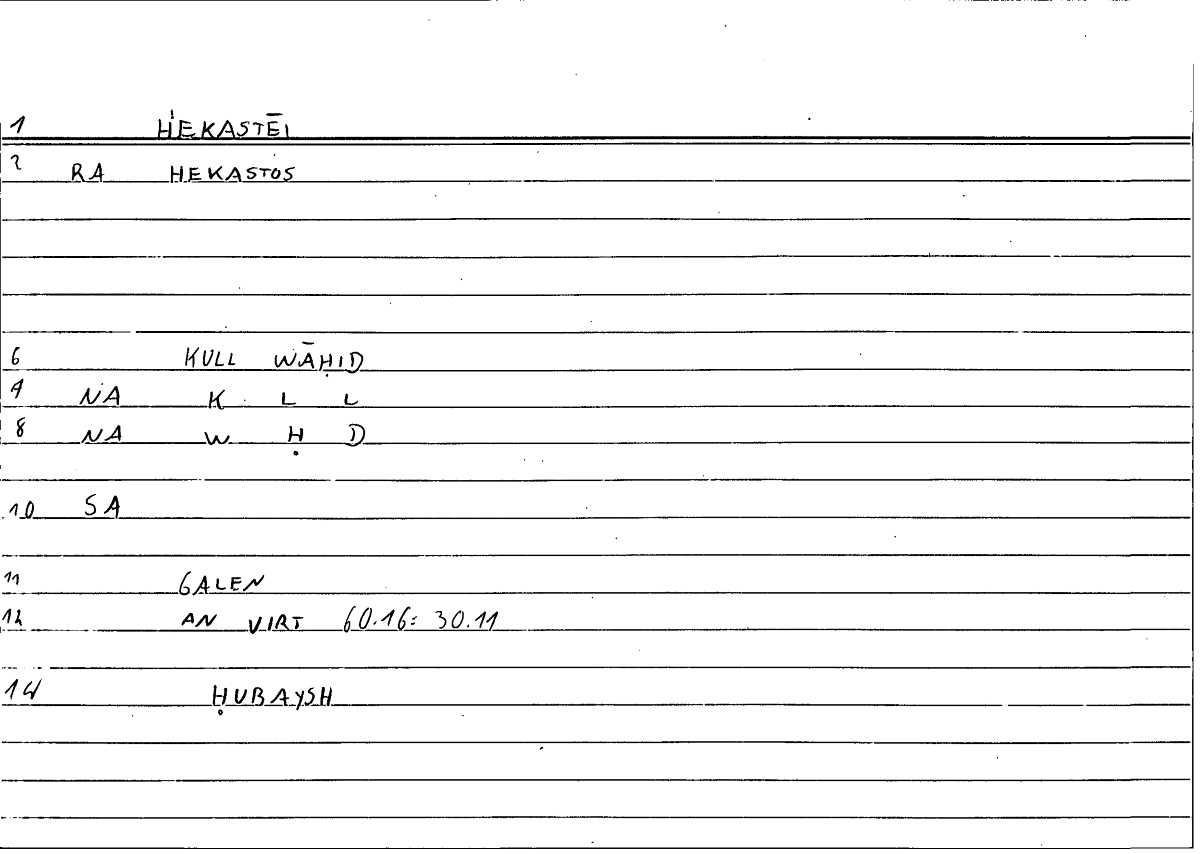 1 HEKASTĒI
2 RA HEKASTOS
6 KULL WĀḤID
7 NA K L L
8 NA W Ḥ D
10 SA
11 GALEN
12 AN VIRT 60.16: 30.11
14 ḤUBAYSH